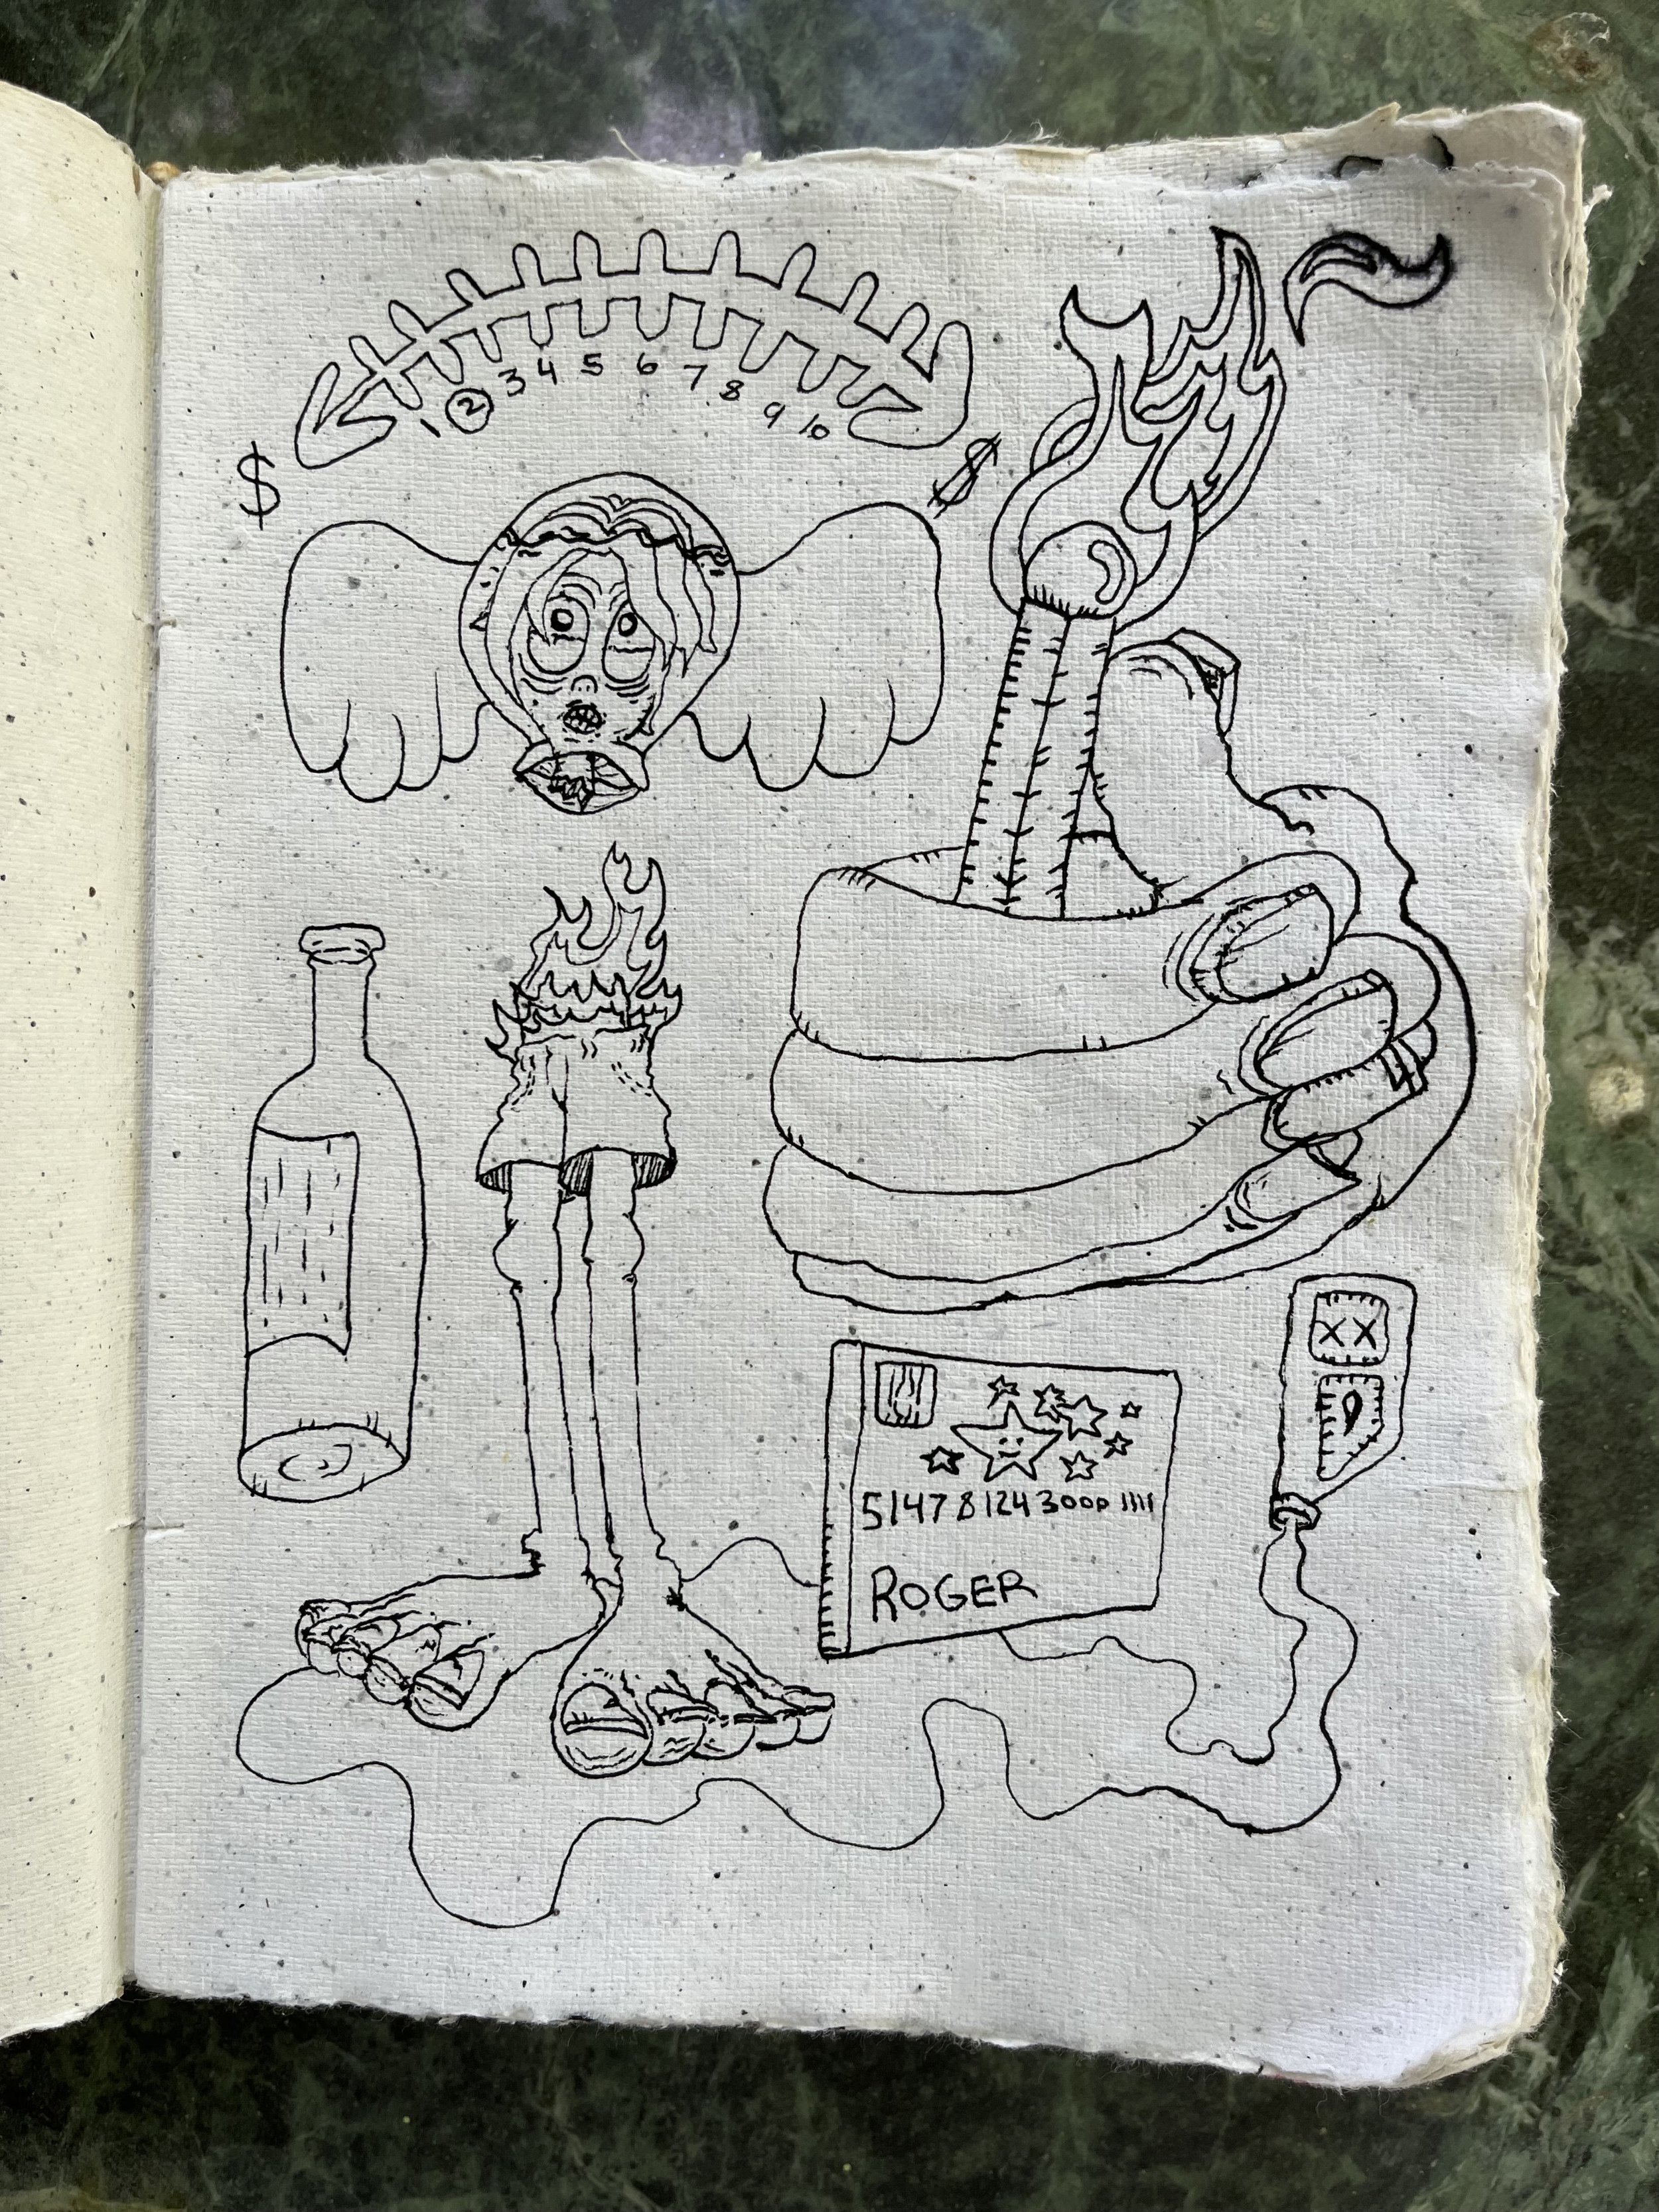 1 2 3 4 5 6 7 8 9 10
$ $
XX
5147 8124 3000 1111
ROGER